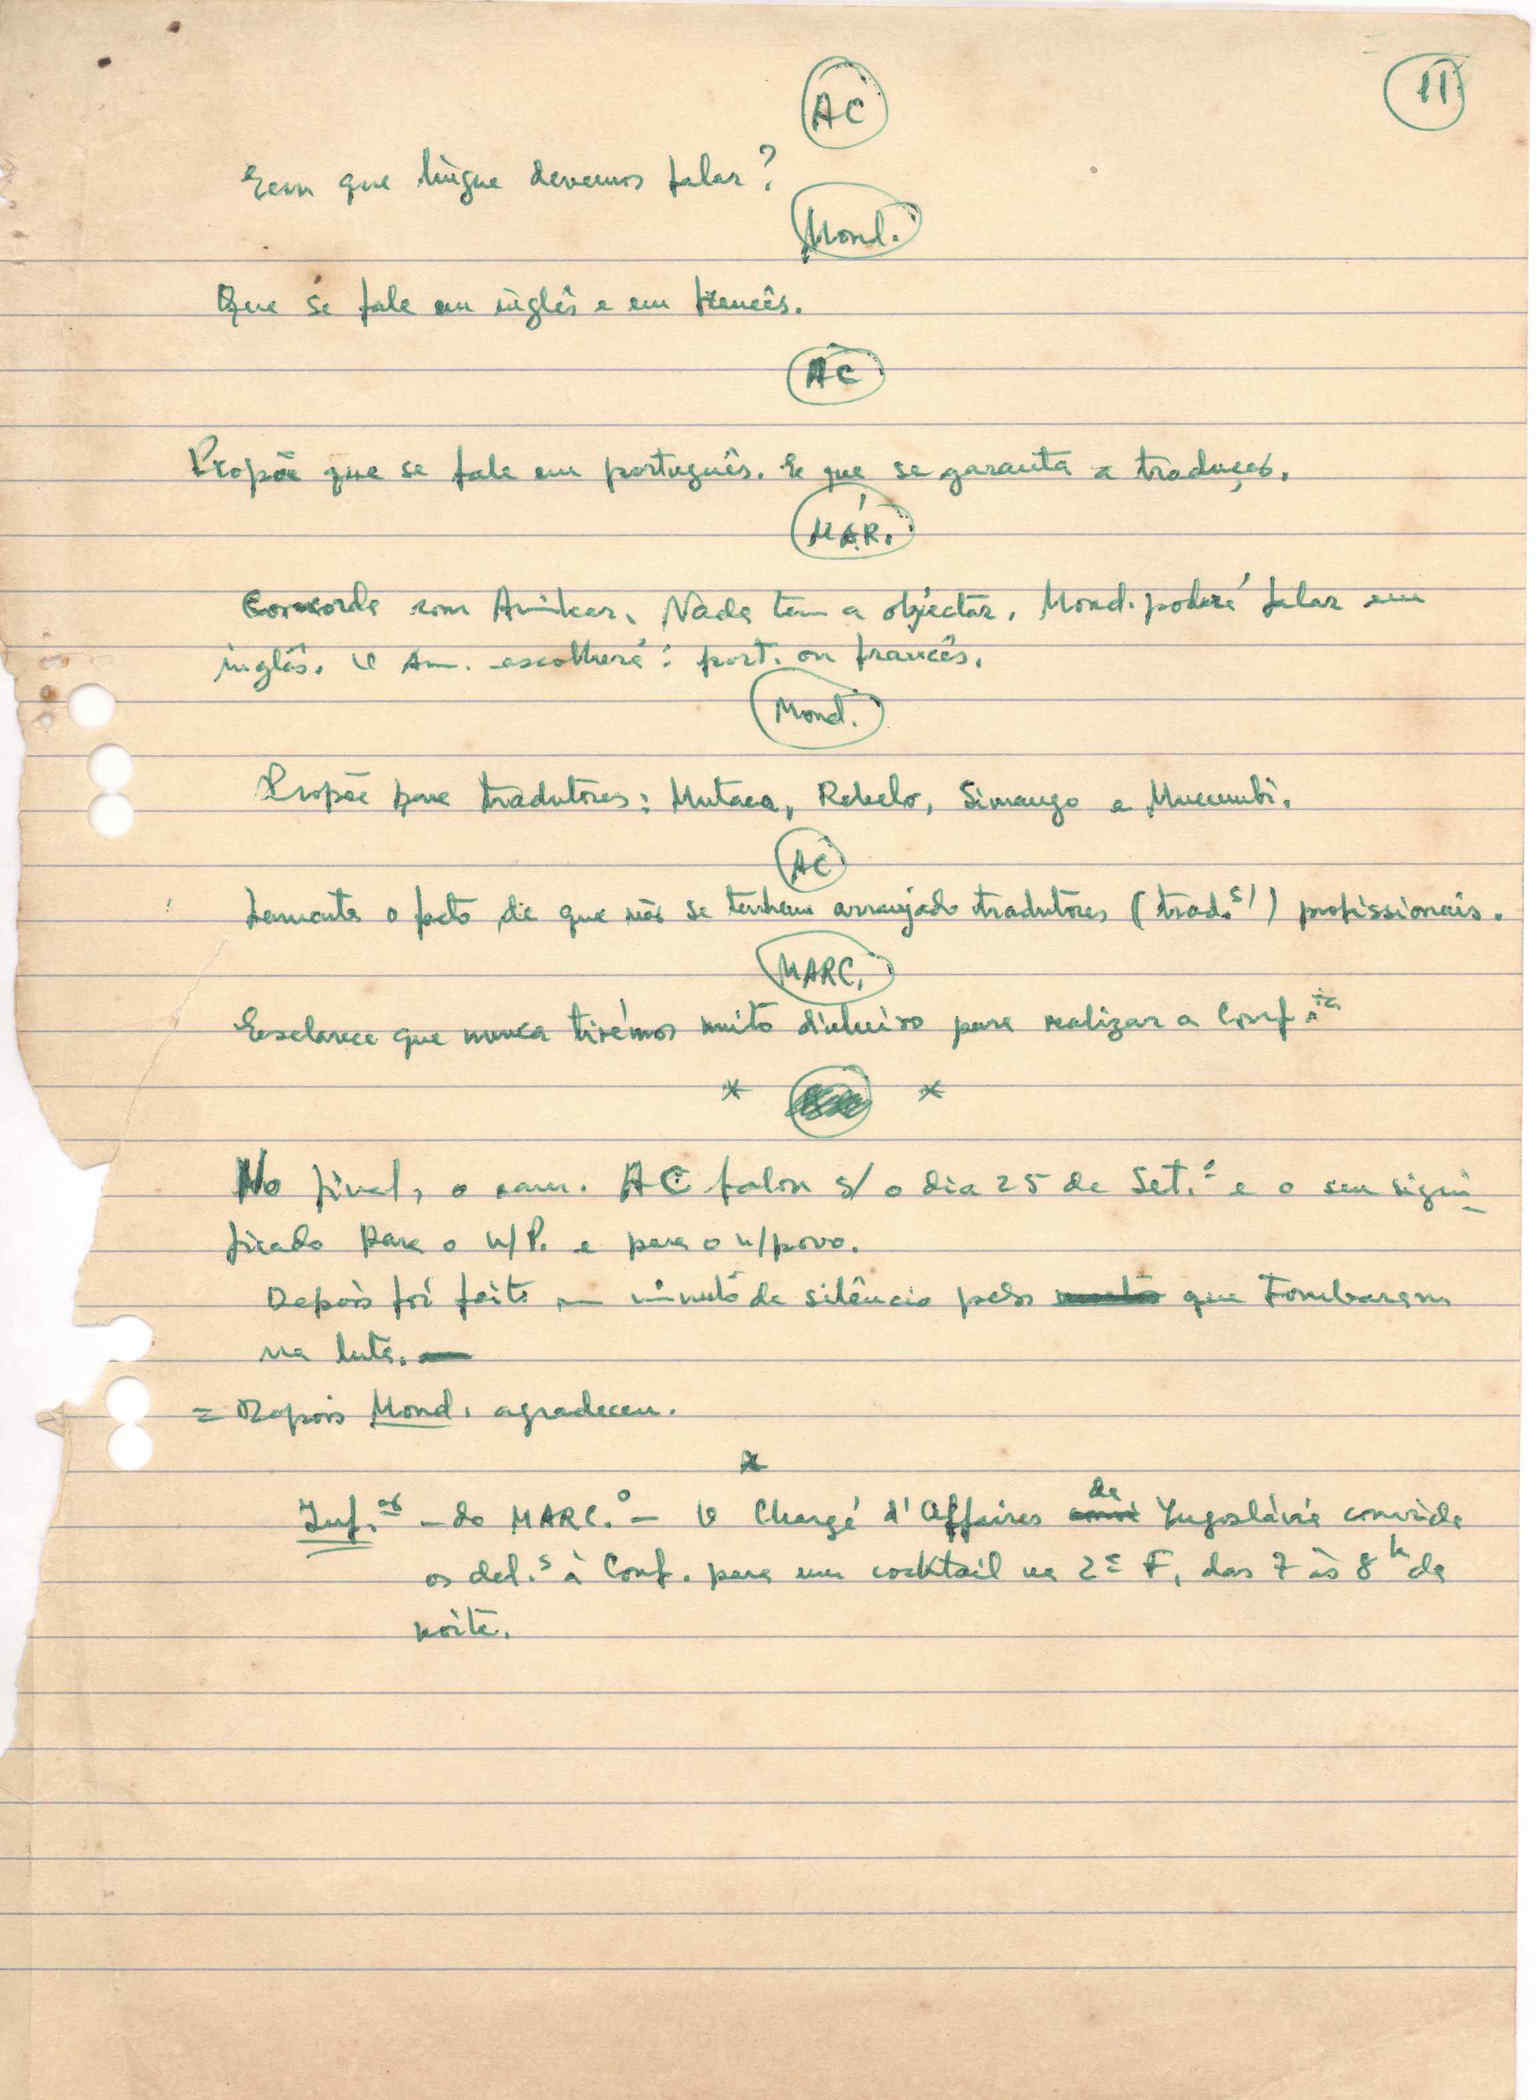 11
AC
Em que língua devemos falar?
Mond.
Que se fale em inglês e em francês.
AC
Propõe que se fale em português. E que se garanta a tradução.
MÁR.
Concorda com Amílcar. Nada tem a objectar. Mond. poderá falar em
inglês. O Am. escolherá: port. ou francês.
Mond.
Propõe para tradutores: Mutaca, Rebelo, Simango e Mucumbi.
AC
Lamenta o facto de que não se tenham arranjado tradutores (trad.s/) profissionais.
MARC.
Esclarece que nunca tivémos muito dinheiro para realizar a Conf.ia
* *
No final, o cam. AC falou s/ o dia 25 de Set.º e o seu signi-
ficado para o n/P. e para o n/povo.
Depois foi feito um minuto de silêncio pelos que Tombaram
na luta.
= Depois Mond. agradeceu.
*
Inf.ão - do MARC.º - O Chargé d'Affaires da Jugoslávia convida
os del.s à Conf. para um cocktail na 2ª F, das 7 às 8h da
noite.